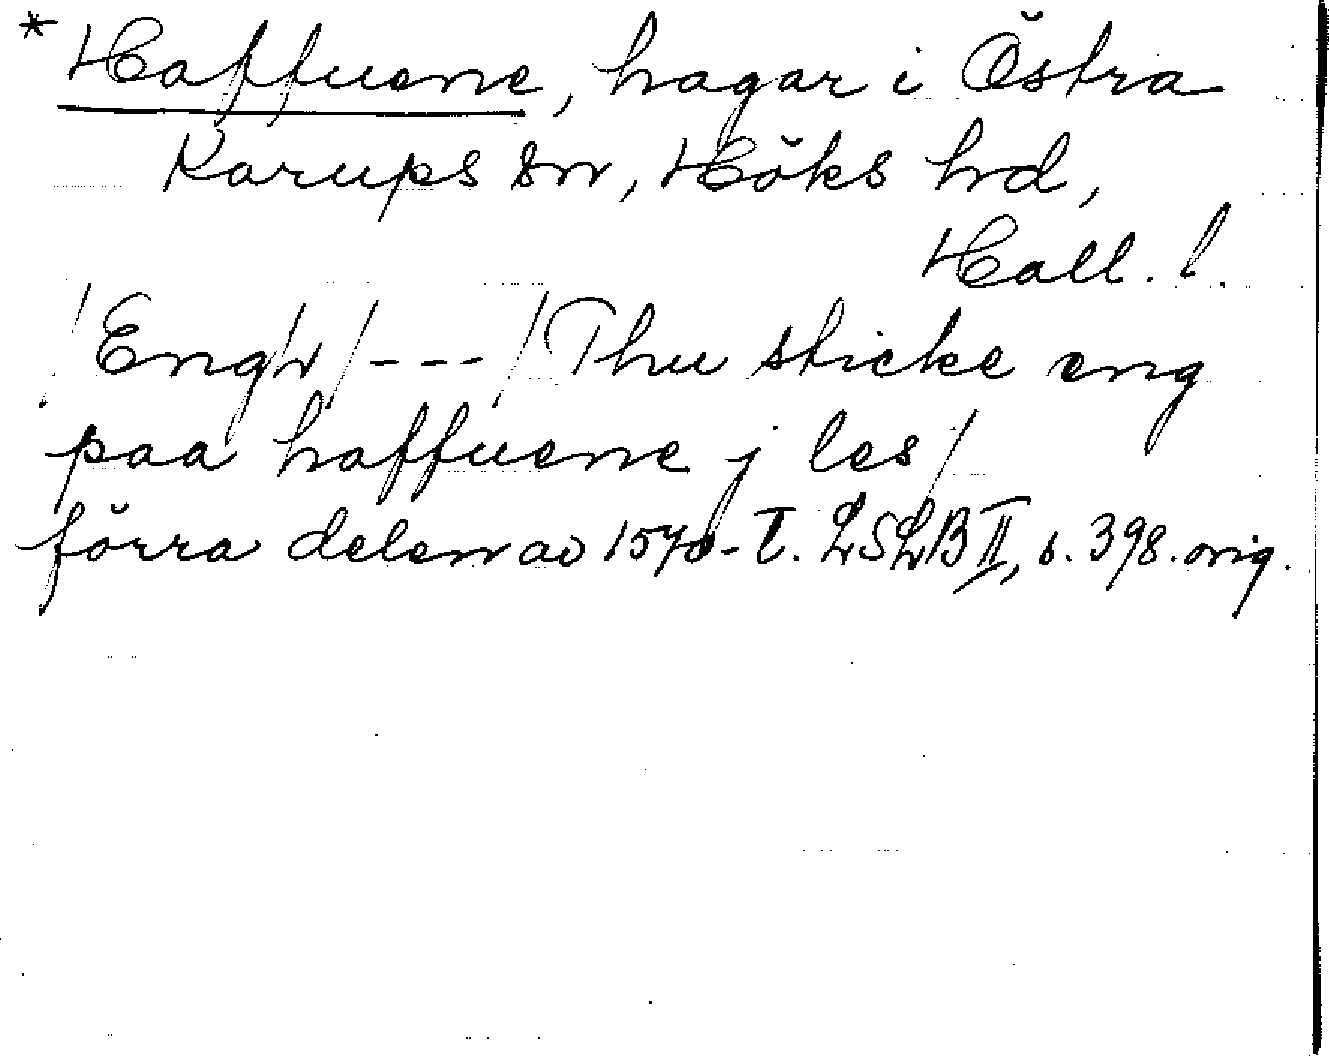 * Haffuene, hagar i Östra
Karups sn, Höks hd,
Hall. l.
/Engh/---/Thu sticke eng
paa haffuene j les/
förra delen av 1570-t. LSLB II, s. 398. orig.